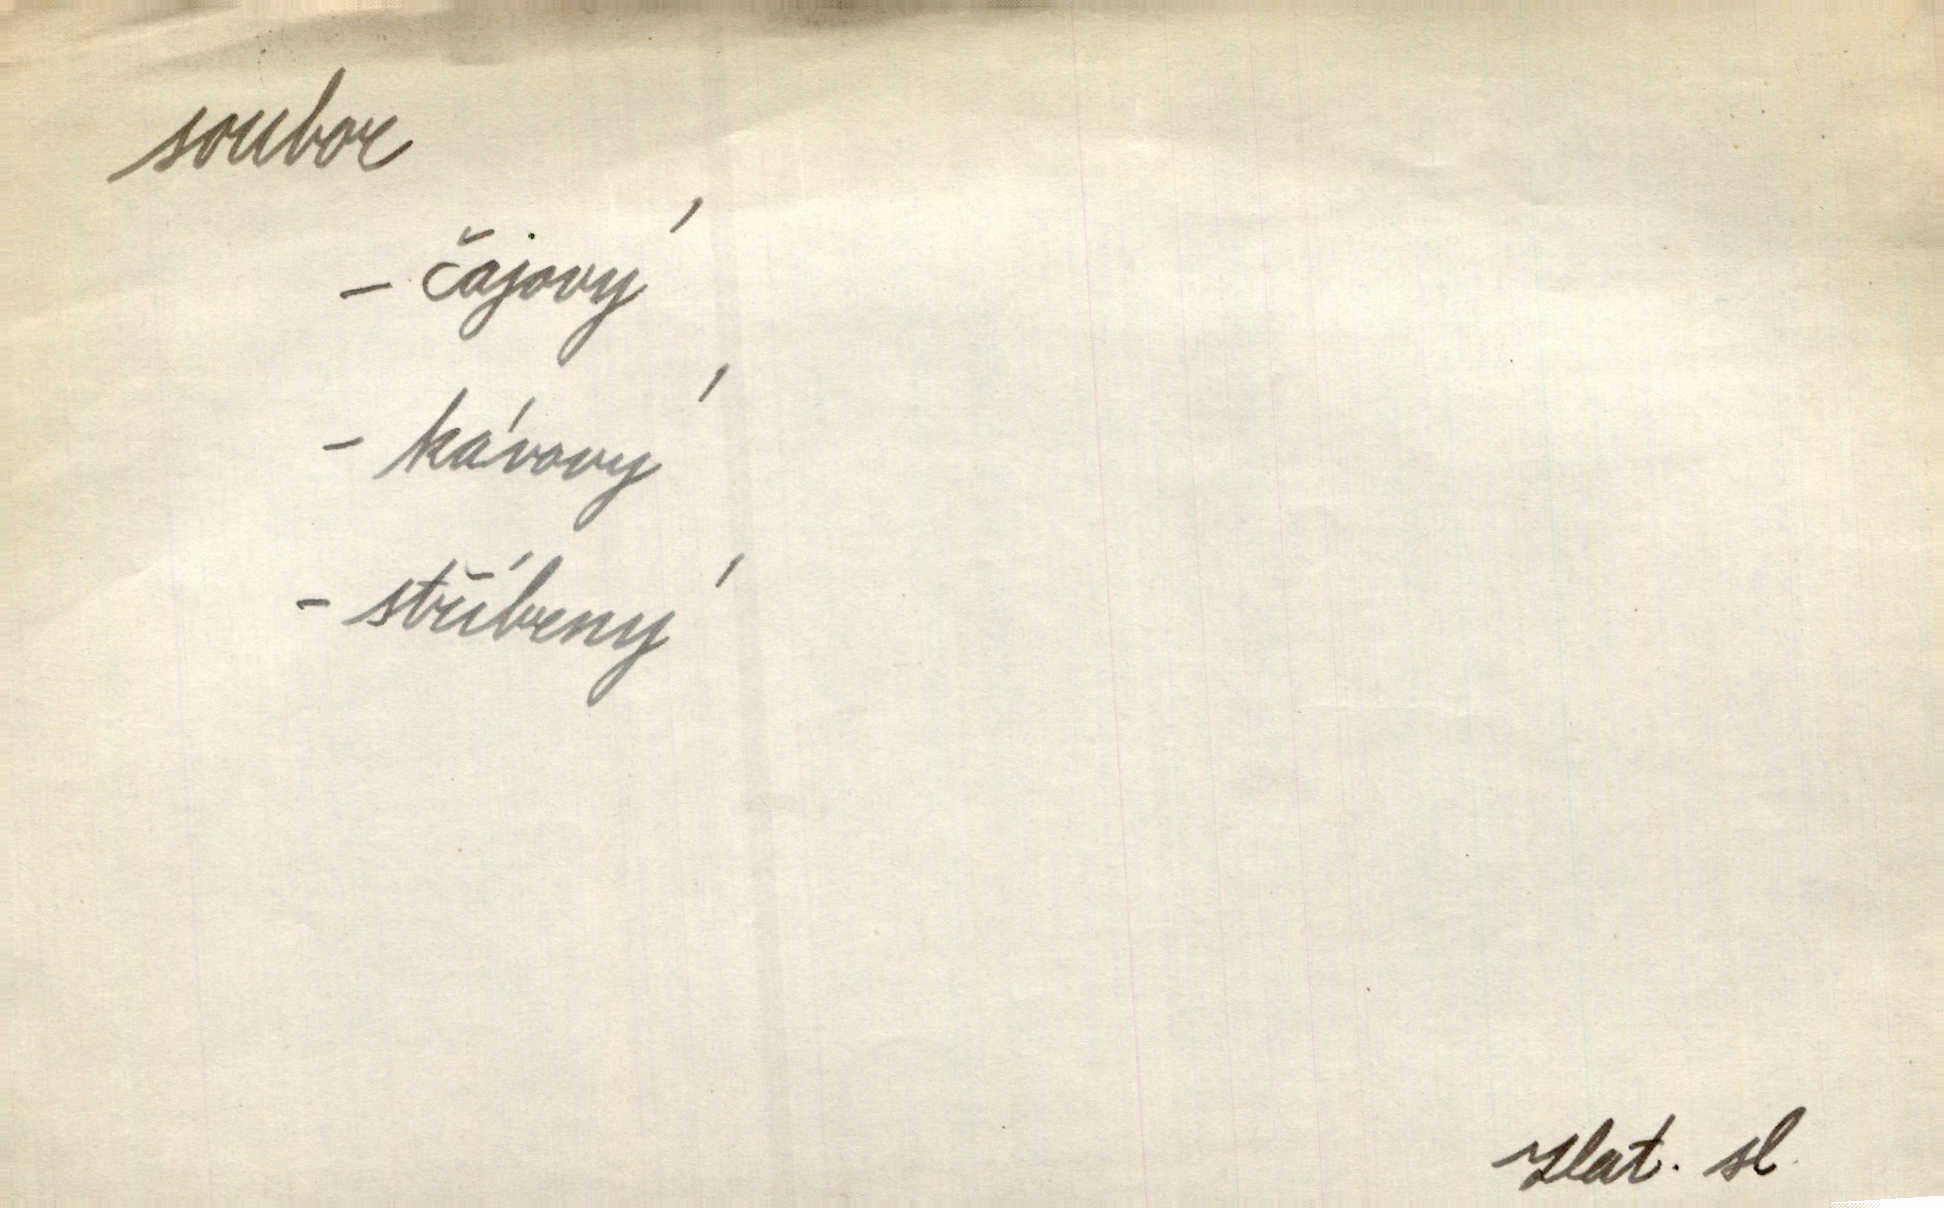 soubor
- čajový
- kávový
- stříbrný
Zlat. sl.